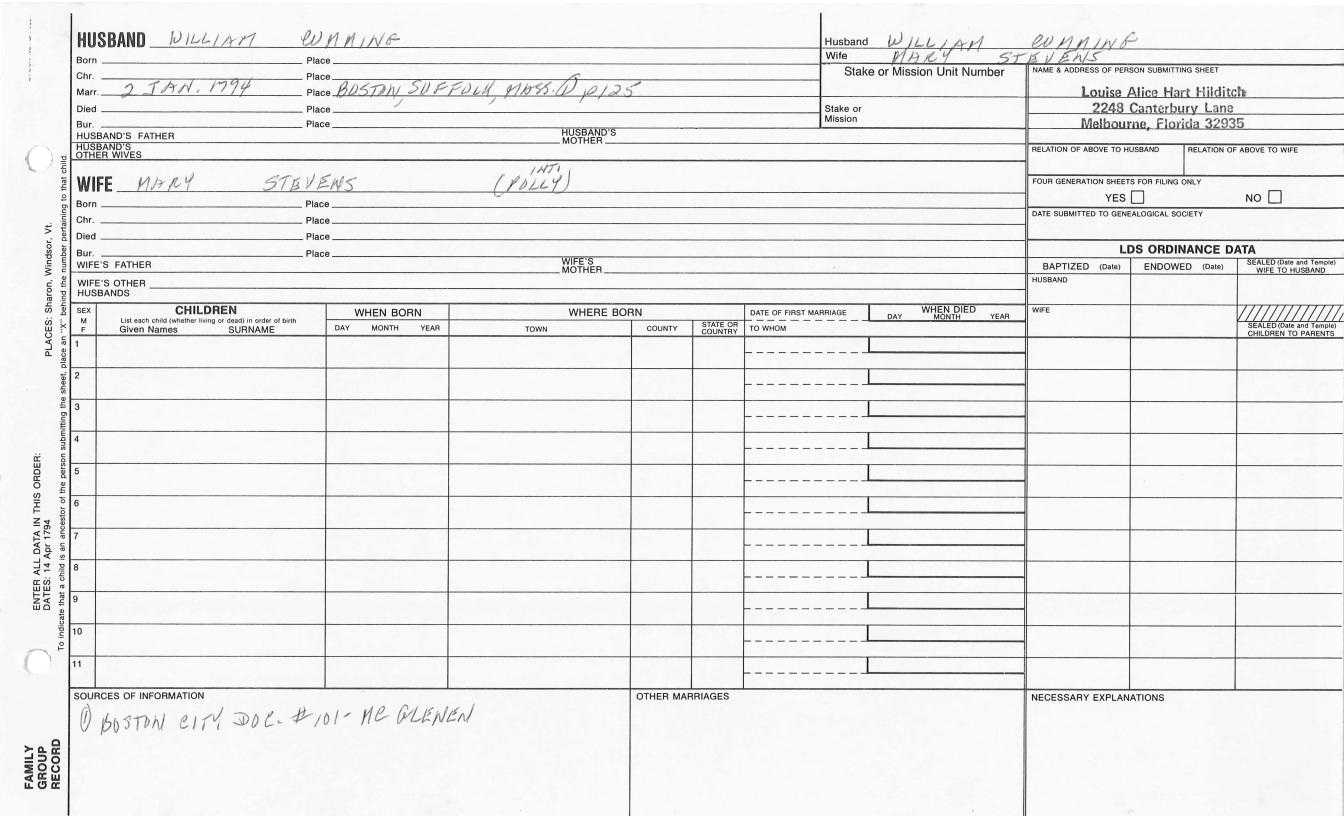 HUSBAND WILLIAM CUMMING
Born Place
Chr. Place
Marr. 2 JAN. 1794 Place BOSTON, SUFFOLK, MASS. ① p125
Died Place
Bur. Place
HUSBAND'S FATHER HUSBAND'S MOTHER
HUSBAND'S OTHER WIVES
Husband WILLIAM CUMMING
Wife MARY STEVENS
Stake or Mission Unit Number
Stake or Mission
NAME & ADDRESS OF PERSON SUBMITTING SHEET
Louise Alice Hart Hilditch
2248 Canterbury Lane
Melbourne, Florida 32935
RELATION OF ABOVE TO HUSBAND RELATION OF ABOVE TO WIFE
FOUR GENERATION SHEETS FOR FILING ONLY
YES NO
DATE SUBMITTED TO GENEALOGICAL SOCIETY
WIFE MARY STEVENS (POLLY) INT.
Born Place
Chr. Place
Died Place
Bur. Place
WIFE'S FATHER WIFE'S MOTHER
WIFE'S OTHER HUSBANDS
LDS ORDINANCE DATA
BAPTIZED (Date) ENDOWED (Date) SEALED (Date and Temple) WIFE TO HUSBAND
HUSBAND
WIFE
SEALED (Date and Temple) CHILDREN TO PARENTS
SEX M F
CHILDREN
List each child (whether living or dead) in order of birth
Given Names SURNAME
WHEN BORN
DAY MONTH YEAR
WHERE BORN
TOWN COUNTY STATE OR COUNTRY
DATE OF FIRST MARRIAGE
TO WHOM
WHEN DIED
DAY MONTH YEAR
1
2
3
4
5
6
7
8
9
10
11
SOURCES OF INFORMATION
① BOSTON CITY DOC. #101- MC GLENEN
OTHER MARRIAGES
NECESSARY EXPLANATIONS
FAMILY GROUP RECORD
ENTER ALL DATA IN THIS ORDER:
DATES: 14 Apr 1794 PLACES: Sharon, Windsor, Vt.
To indicate that a child is an ancestor of the person submitting the sheet, place an "X" behind the number pertaining to that child